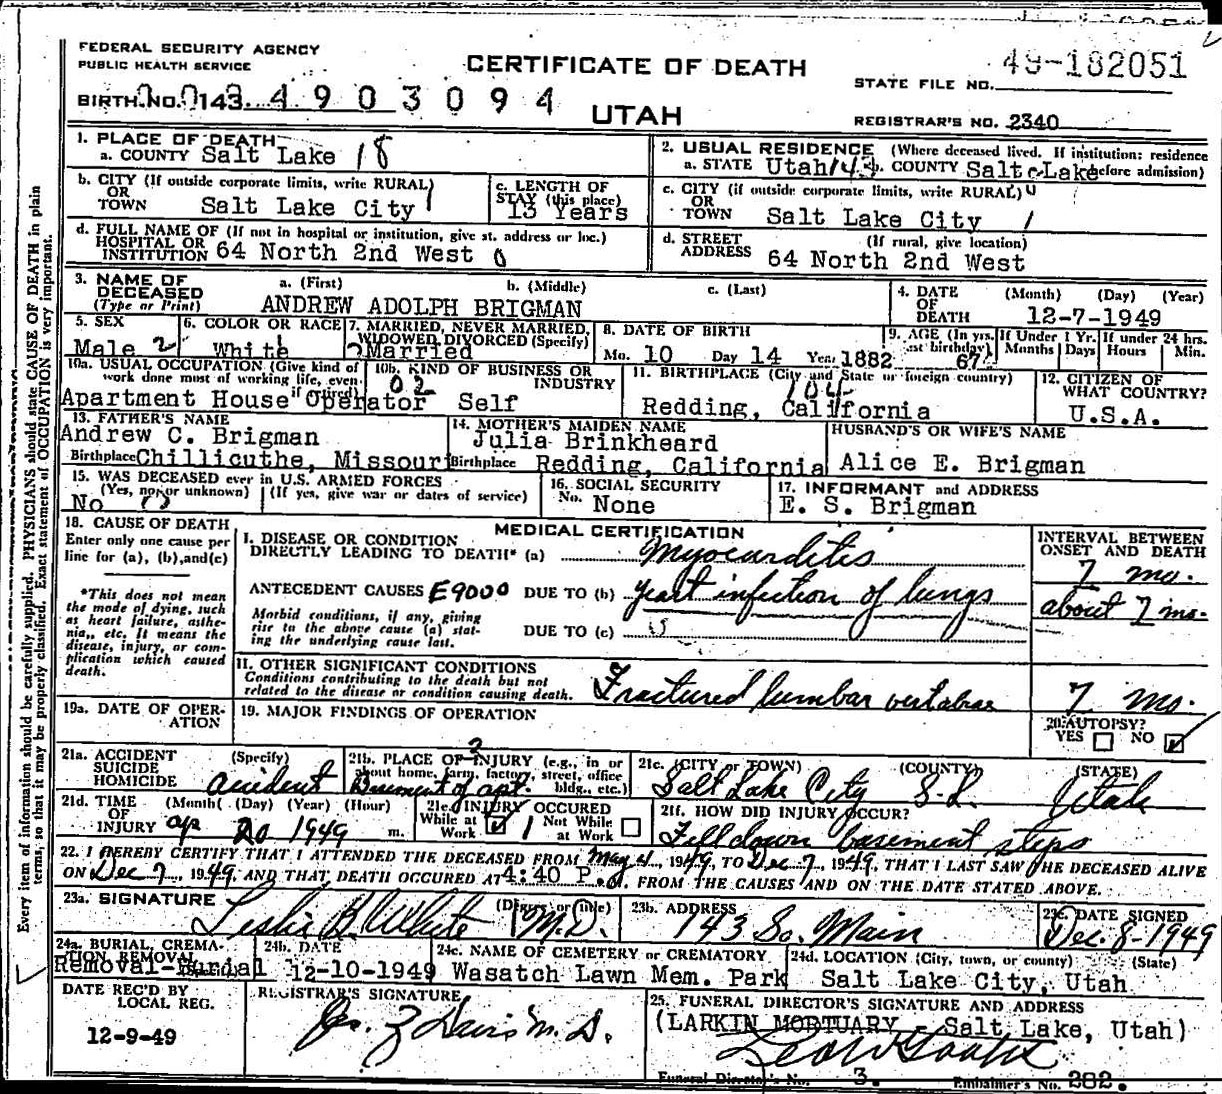 FEDERAL SECURITY AGENCY
PUBLIC HEALTH SERVICE
CERTIFICATE OF DEATH
STATE FILE NO. 49-182051
BIRTH NO. 143 4 9 0 3 0 9 4
UTAH
REGISTRAR'S NO. 2340
1. PLACE OF DEATH
a. COUNTY Salt Lake 18
2. USUAL RESIDENCE (Where deceased lived. If institution: residence before admission)
a. STATE Utah 143 b. COUNTY Salt Lake
b. CITY (If outside corporate limits, write RURAL)
OR
TOWN Salt Lake City 1
c. LENGTH OF
STAY (this place)
13 Years
c. CITY (if outside corporate limits, write RURAL)
OR
TOWN Salt Lake City 1
d. FULL NAME OF (If not in hospital or institution, give st. address or loc.)
HOSPITAL OR
INSTITUTION 64 North 2nd West 0
d. STREET
ADDRESS
(If rural, give location)
64 North 2nd West
3. NAME OF
DECEASED
(Type or Print)
a. (First) b. (Middle) c. (Last)
ANDREW ADOLPH BRIGMAN
4. DATE
OF
DEATH
(Month) (Day) (Year)
12-7-1949
5. SEX
Male 2
6. COLOR OR RACE
White 1
7. MARRIED, NEVER MARRIED,
WIDOWED, DIVORCED (Specify)
2 Married
8. DATE OF BIRTH
Mo. 10 Day 14 Year 1882
9. AGE (In yrs.
last birthday)
67
If Under 1 Yr.
Months Days
If under 24 hrs.
Hours Min.
10a. USUAL OCCUPATION (Give kind of
work done most of working life, even
if retired)
Apartment House Operator
10b. KIND OF BUSINESS OR
INDUSTRY
02
Self
11. BIRTHPLACE (City and State or foreign country)
104
Redding, California
12. CITIZEN OF
WHAT COUNTRY?
U.S.A.
13. FATHER'S NAME
Andrew C. Brigman
Birthplace Chillicuthe, Missouri
14. MOTHER'S MAIDEN NAME
Julia Brinkheard
Birthplace Redding, California
HUSBAND'S OR WIFE'S NAME
Alice E. Brigman
15. WAS DECEASED ever in U.S. ARMED FORCES
(Yes, no, or unknown) (If yes, give war or dates of service)
No
16. SOCIAL SECURITY
No. None
17. INFORMANT and ADDRESS
E. S. Brigman
18. CAUSE OF DEATH
Enter only one cause per
line for (a), (b), and (c)
*This does not mean
the mode of dying, such
as heart failure, asthe-
nia,, etc. It means the
disease, injury, or com-
plication which caused
death.
MEDICAL CERTIFICATION
I. DISEASE OR CONDITION
DIRECTLY LEADING TO DEATH* (a) Myocarditis
ANTECEDENT CAUSES E9000 DUE TO (b) yeast infection of lungs
Morbid conditions, if any, giving
rise to the above cause (a) stat-
ing the underlying cause last.
DUE TO (c)
INTERVAL BETWEEN
ONSET AND DEATH
7 mo.
about 7 mo.
II. OTHER SIGNIFICANT CONDITIONS
Conditions contributing to the death but not
related to the disease or condition causing death.
Fractured lumbar vertabrae
7 mo.
19a. DATE OF OPER-
ATION
19. MAJOR FINDINGS OF OPERATION
20. AUTOPSY?
YES NO
21a. ACCIDENT
SUICIDE
HOMICIDE
(Specify)
accident
21b. PLACE OF INJURY (e.g., in or
about home, farm, factory, street, office
bldg., etc.)
Basement of apt.
21c. (CITY or TOWN) (COUNTY) (STATE)
Salt Lake City S.L. Utah
21d. TIME
OF
INJURY
(Month) (Day) (Year) (Hour)
ap 20 1949 m.
21e. INJURY OCCURED
While at
Work
Not While
at Work
21f. HOW DID INJURY OCCUR?
Fell down basement steps
22. I HEREBY CERTIFY THAT I ATTENDED THE DECEASED FROM May 4, 1949, TO Dec 7, 1949, THAT I LAST SAW THE DECEASED ALIVE
ON Dec 7, 1949 AND THAT DEATH OCCURED AT 4:40 P.M. FROM THE CAUSES AND ON THE DATE STATED ABOVE.
23a. SIGNATURE (Degree or title)
Leslie B. White M.D.
23b. ADDRESS
143 So. Main
23c. DATE SIGNED
Dec. 8-1949
24a. BURIAL, CREMA-
TION REMOVAL
Removal-Burial
24b. DATE
12-10-1949
24c. NAME OF CEMETERY or CREMATORY
Wasatch Lawn Mem. Park
24d. LOCATION (City, town, or county) (State)
Salt Lake City, Utah
DATE REC'D BY
LOCAL REG.
12-9-49
REGISTRAR'S SIGNATURE
25. FUNERAL DIRECTOR'S SIGNATURE AND ADDRESS
(LARKIN MORTUARY - Salt Lake, Utah)
Funeral Director's No. 3. Embalmer's No. 282.
Every item of information should be carefully supplied. PHYSICIANS should state CAUSE OF DEATH in plain
terms, so that it may be properly classified. Exact statement of OCCUPATION is very important.